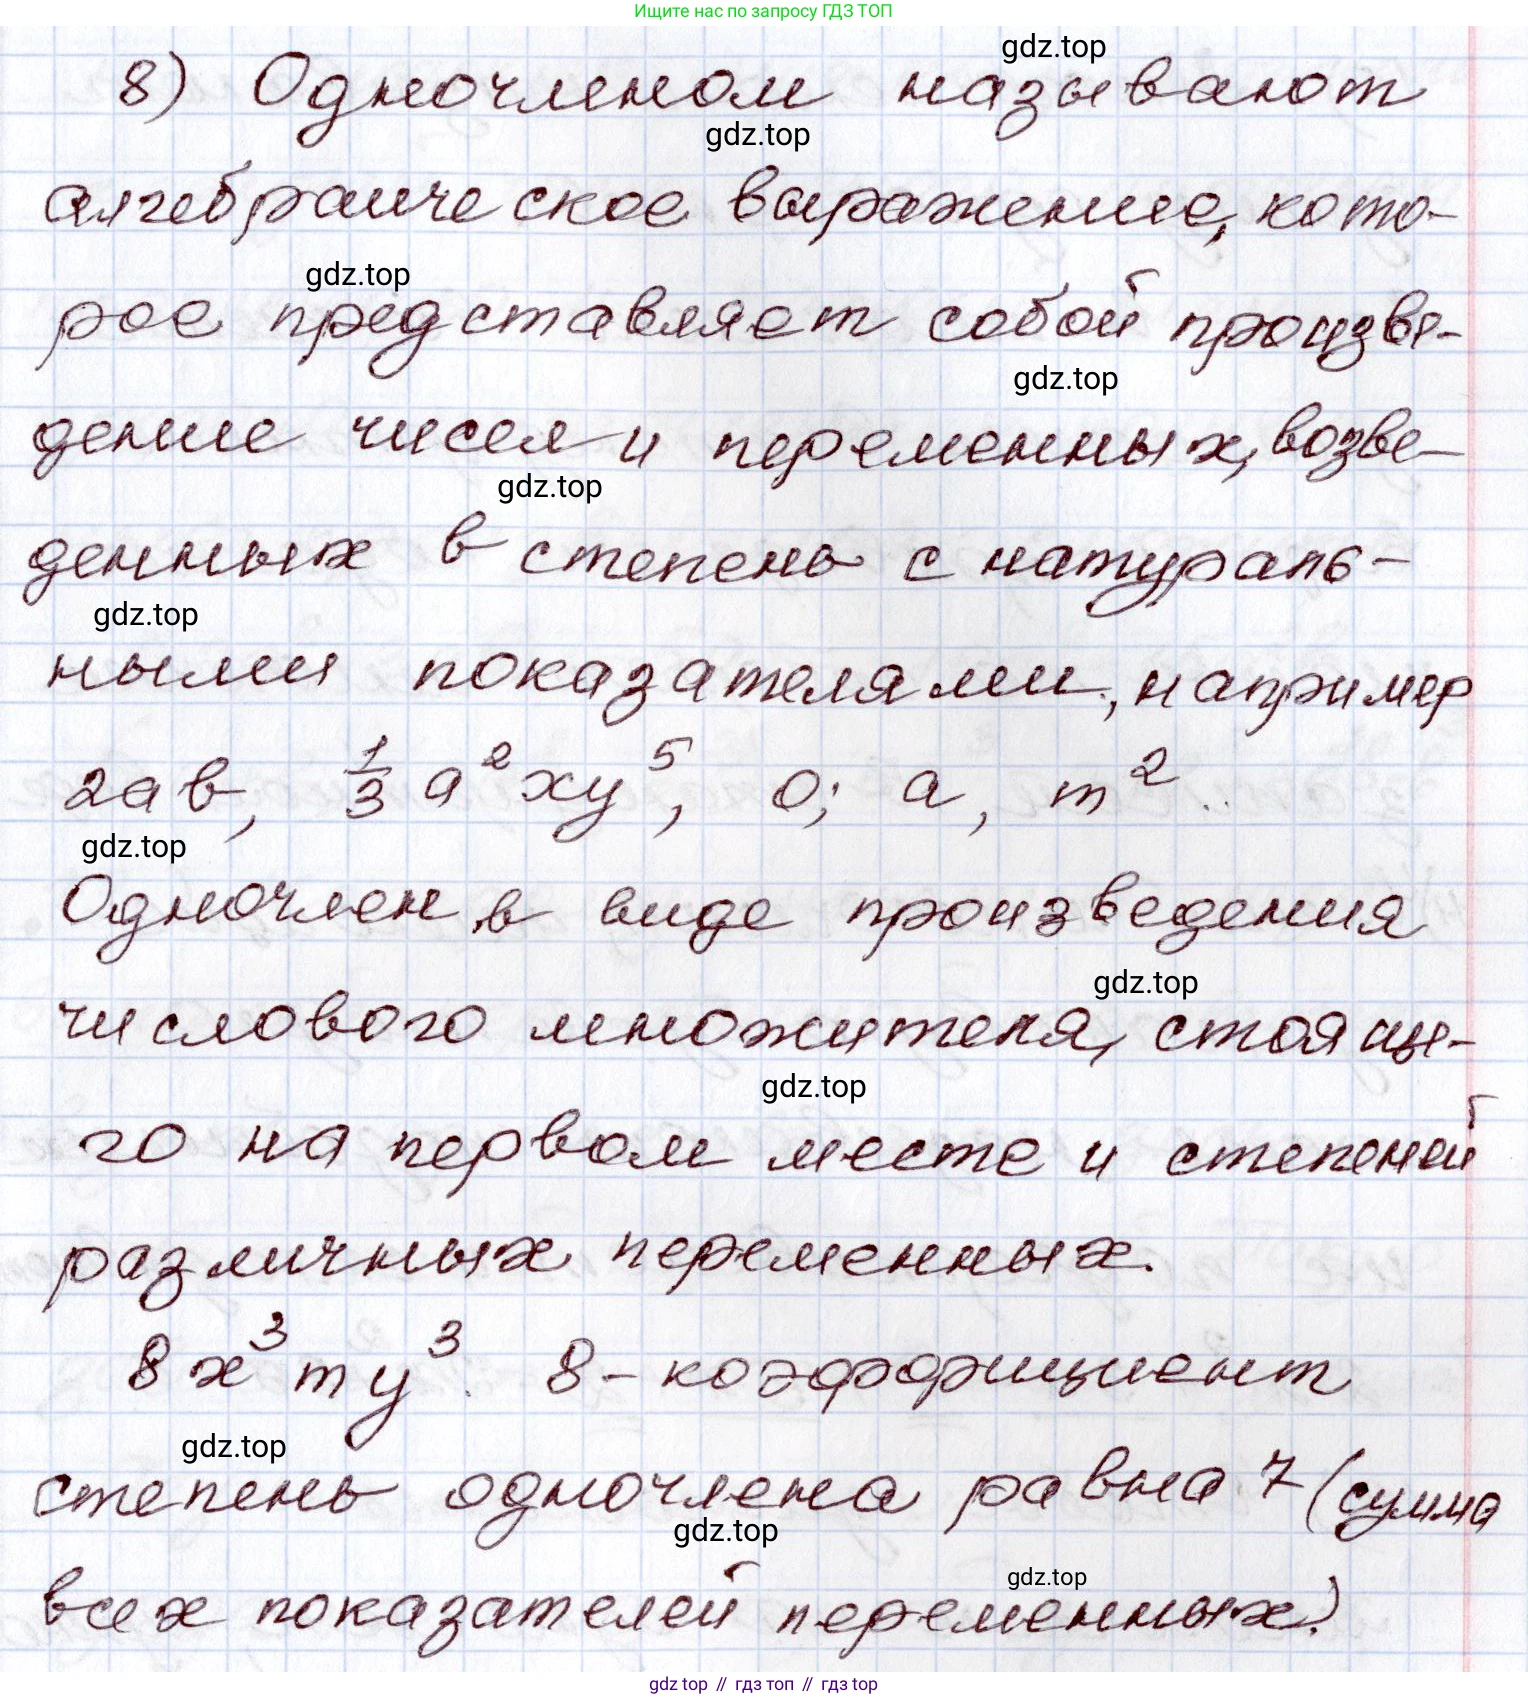 Ищите нас по запросу ГДЗ ТОП
gdz.top
8) Одночленом называют
gdz.top
алгебраическое выражение, кото-
gdz.top
рое представляет собой произве-
gdz.top
дение чисел и переменных, возве-
gdz.top
денных в степень с натураль-
gdz.top
ными показателями, например
2ав, 1/3 a²xy⁵, 0; a, m²..
gdz.top
Одночлен в виде произведения
gdz.top
числового множителя, стояще-
gdz.top
го на первом месте и степеней
различных переменных.
8x³my³. 8 - коэффициент
gdz.top
степень одночлена равна 7 (сумма
gdz.top
всех показателей переменных.)
gdz.top
gdz top // гдз топ // гдз top